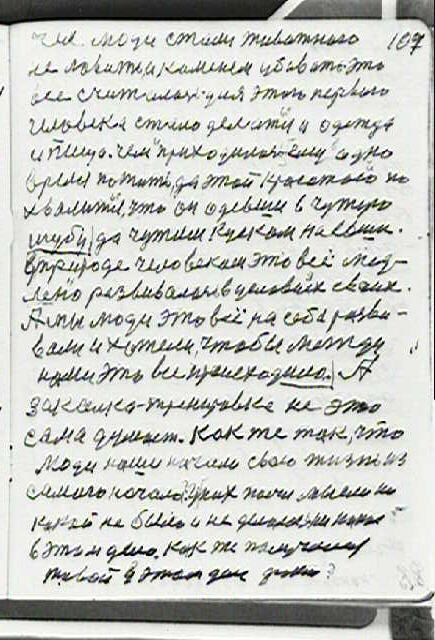 чие. люди стали животного 107
не ловить, и камнем убивать. это
все считалось для этого первого
человека стало делать и одежда
и пища. чем приходилось ему одно
время пожить, да этой красотой по
хвалиться, что он одевши в чужую
шубу, да чужим куском наевши.
В природе человекам это всё мед-
лено развивалось в условиях своих.
А мы люди это всё на себе разви-
вали и хотели, чтобы между
нами это все происходило. А
закалка-тренировка не это
сама думает. Как же так, что
люди наши начали свою жизнь из
самого начала? У них почти мысли ни
какой не было и не делалось ими
в этом деле. Как же получился
такой в этом деле